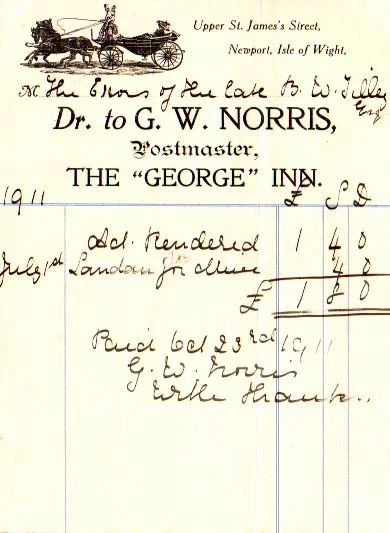 Upper St. James's Street,
Newport, Isle of Wight,
M The Exors of the late B. W. Tilley
Esq
Dr. to G. W. NORRIS,
Postmaster,
THE "GEORGE" INN.
1911 £ S D
Act Rendered 1 4 0
July 1st Landau for 4 0
£ 1 8 0
Paid Oct 23rd 1911
G. W. Norris
With Thanks..